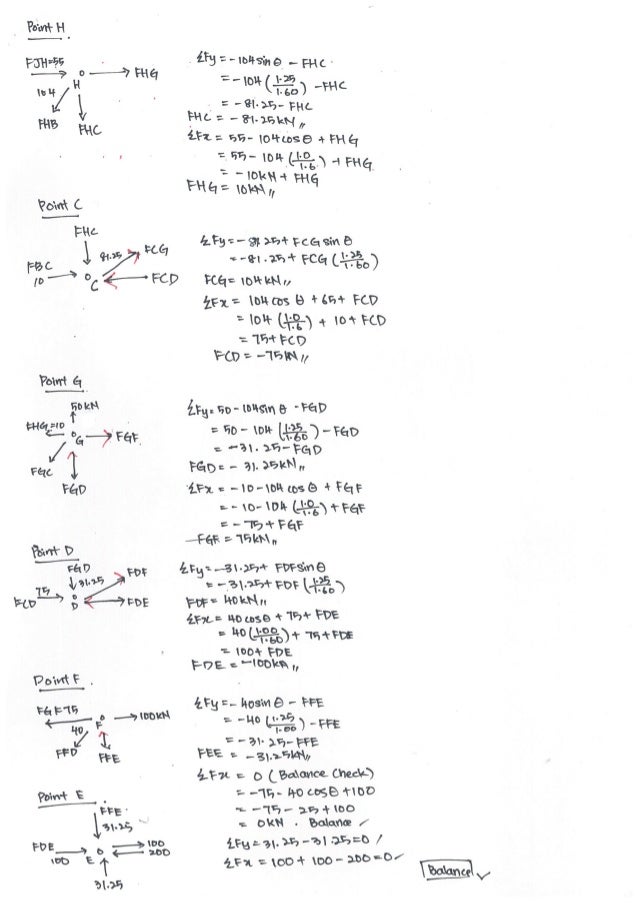 Point H
FJH=55
FHG
H
104
FHB
FHC
ΣFy = -104 sin θ - FHC
= -104 (1.25/1.60) - FHC
= -81.25 - FHC
FHC = -81.25 kN //
ΣFx = 55 - 104 cos θ + FHG
= 55 - 104 (1.0/1.6) + FHG
= -10kN + FHG
FHG = 10kN //
Point C
FHC
81.25
FCG
FBC
10
C
FCD
ΣFy = -81.25 + FCG sin θ
= -81.25 + FCG (1.25/1.60)
FCG = 104 kN //
ΣFx = 104 cos θ + 65 + FCD
= 104 (1.0/1.6) + 10 + FCD
= 75 + FCD
FCD = -75 kN //
Point G
50 kN
FHG=10
G
FGF
FGC
FGD
ΣFy = 50 - 104 sin θ - FGD
= 50 - 104 (1.25/1.60) - FGD
= -31.25 - FGD
FGD = -31.25 kN //
ΣFx = -10 - 104 cos θ + FGF
= -10 - 104 (1.0/1.6) + FGF
= -75 + FGF
FGF = 75 kN //
Point D
FGD
31.25
FDF
75
FCD
D
FDE
ΣFy = -31.25 + FDF sin θ
= -31.25 + FDF (1.25/1.60)
FDF = 40 kN //
ΣFx = 40 cos θ + 75 + FDE
= 40 (1.00/1.60) + 75 + FDE
= 100 + FDE
FDE = -100 kN //
Point F
FGF=75
F
100KN
40
FFD
FFE
ΣFy = -40 sin θ - FFE
= -40 (1.25/1.00) - FFE
= -31.25 - FFE
FEE = -31.25 kN //
ΣFx = 0 (Balance Check)
= -75 - 40 cos θ + 100
= -75 - 25 + 100
= 0 KN . Balance ✓
Point E
FFE
31.25
FDE
100
E
100
200
31.25
ΣFy = 31.25 - 31.25 = 0 /
ΣFx = 100 + 100 - 200 = 0 ✓
Balance ✓